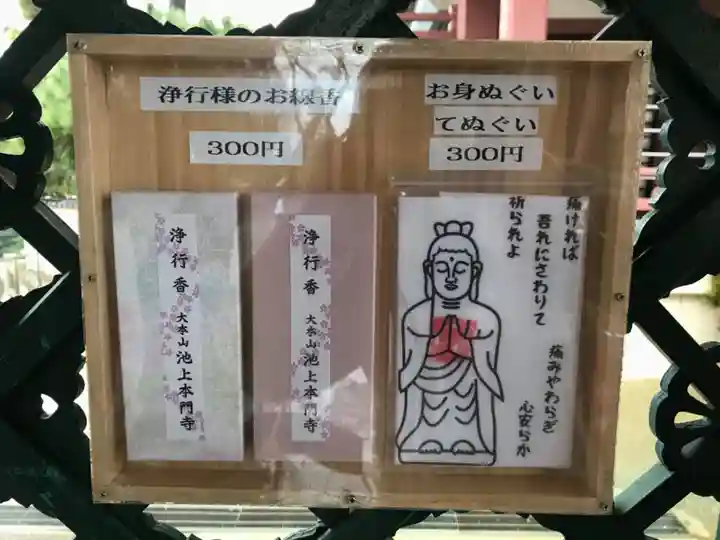 浄行様のお線香
300円
お身ぬぐい
てぬぐい
300円
浄行香
大本山 池上本門寺
浄行香
大本山 池上本門寺
痛ければ
吾れにさわりて
祈られよ
痛みやわらぎ
心安らか